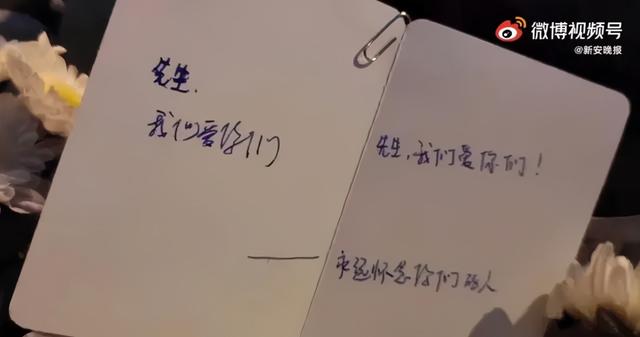 先生，
我们爱你们
先生，我们爱你们！
——永远怀念你们的人
微博视频号
@新安晚报